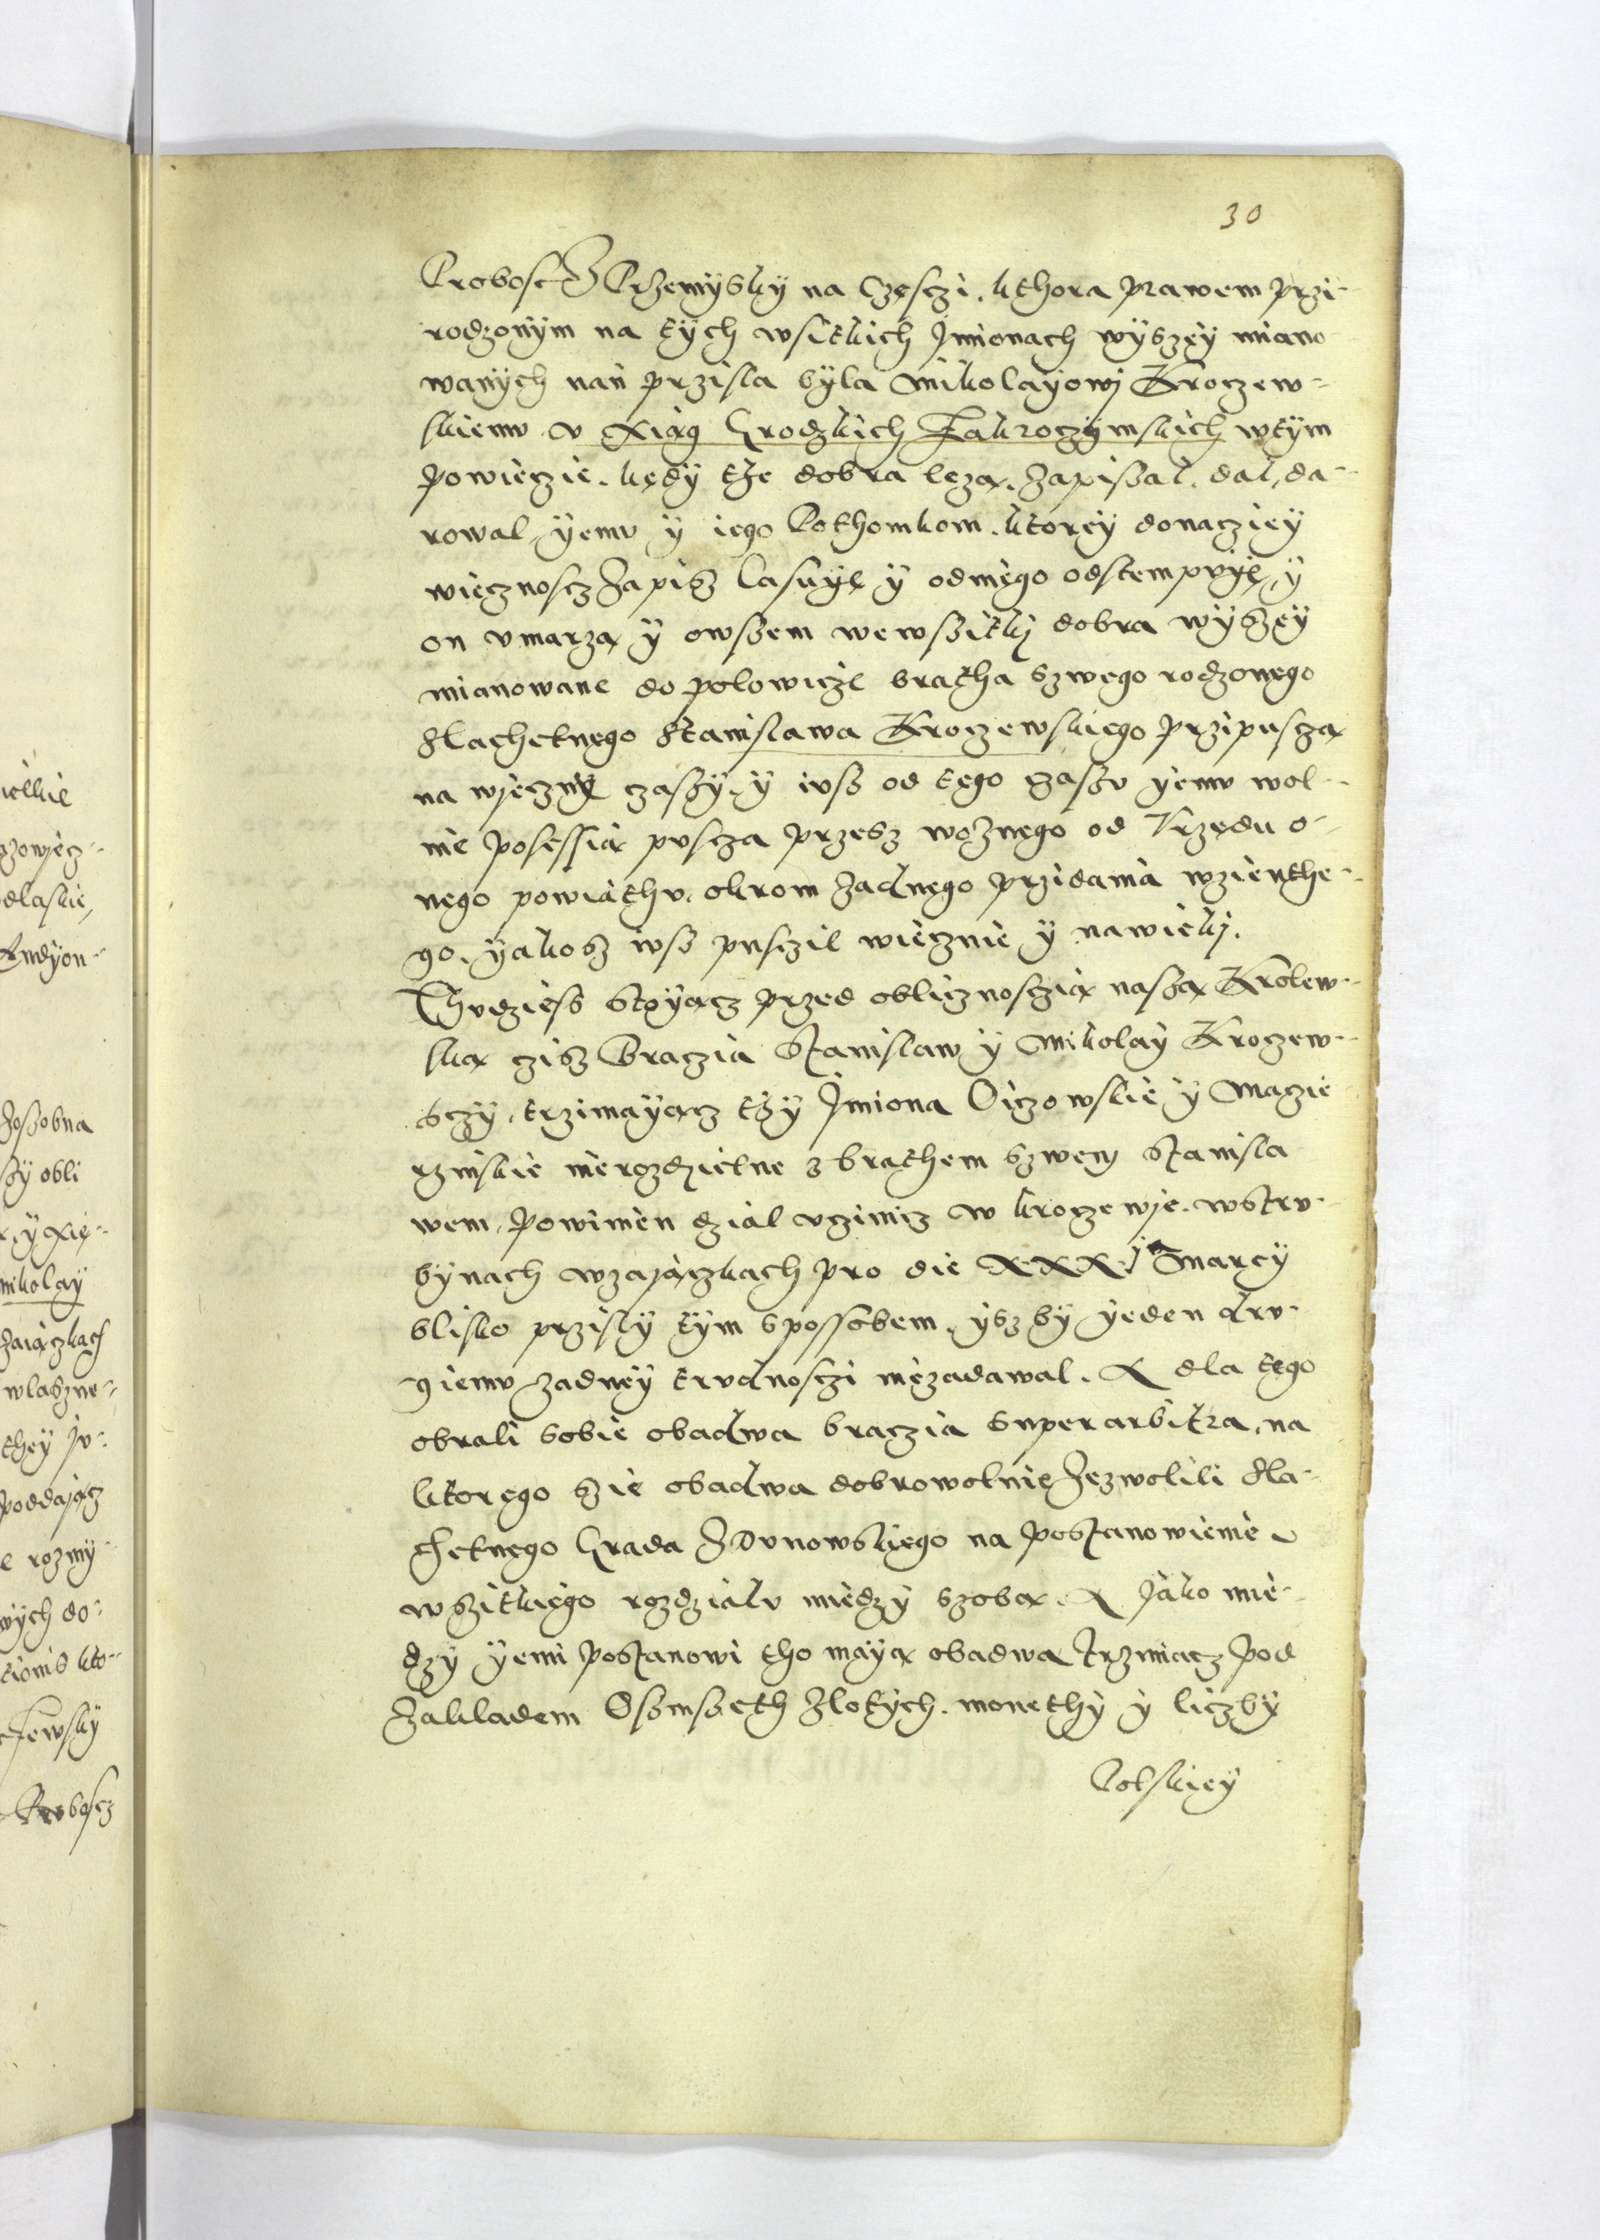 30
Probosc Przemÿskÿ na Częsczi. kthora prawem przi-
rodzonÿm na tÿch wsitkich Jmionach wÿszeÿ miano
wanÿch nan przisla bÿla Mikolaÿowj Kroczew-
skiemu u Xiąg Grodzkich Zakroczÿmskich wtÿm
powieczie. kędÿ tÿe dobra lezą. zapisal. dal, da-
rowal, ÿemu ÿ iego Pothomkom. ktoreÿ donaczieÿ
wiecznoscz zapisz Casuÿe ÿ odniego odstempuÿe, ÿ
on umarza ÿ owszem wewszitkj dobra wÿszeÿ
mianowane do polowicze bratha szwego rodzonego
slachetnego Stanislawa Kroczewskiego przipuscza
na wjecznÿ czaszÿ. ÿ iusz od tego czaszu ÿemu wol-
nie posessią puscza przesz woznego od Urzędu o-
nego powiathu. okrom zadnego przidania wzienthe-
go. ÿakosz iusz pusczil wiecznie ÿ nawiekj.
Thudziesz stoÿącz przed oblicznosczią naszą Krolew-
ską czisz Braczia Stanislaw ÿ Mikolaÿ Kroczew-
sczÿ, trzimaÿącz tÿ Jmiona Oiczowskie ÿ Maczie
rzinskie nierozdzielne z brathem szwem Stanisla
wem, powinien dzial uczinicz w kroczewje. wstru-
bÿnach wzajączkach pro die XXX Marcÿ
blisko przislÿ tÿm spossobem, ÿsz bÿ ÿeden dru-
giemu zadneÿ trudnosczi niezadawal. A dla tego
obrali sobie obadwa braczia Superarbitra, na
ktorego szie obadwa dobrowolnie zezwolili sla-
chetnego Grada Zdunowskiego na postanowienie
wszitkiego rozdzialu miedzÿ szobą. A Jako mie-
dzÿ ÿemi postanowi tho maÿą obadwa trzimacz pod
zakladem Osmseth zlotÿch. monethÿ ÿ liczbÿ
Polskieÿ